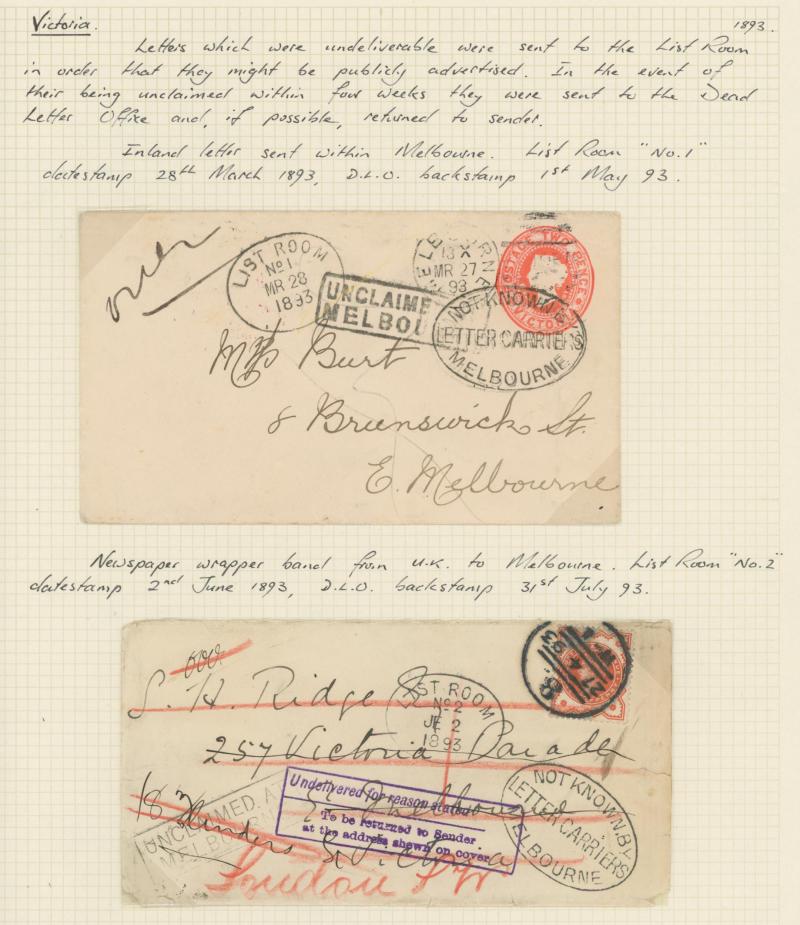 Victoria.
1893.
Letters which were undeliverable were sent to the List Room
in order that they might be publicly advertised. In the event of
their being unclaimed within four weeks they were sent to the Dead
Letter Office and, if possible, returned to sender.
Inland letter sent within Melbourne. List Room "No.1"
datestamp 28th March 1893, D.L.O. backstamp 1st May 93.
over
LIST ROOM
No 1
MR 28
1893
MELBOURNE
13 X
MR 27
93
POSTAGE TWO PENCE
VICTORIA
UNCLAIME
MELBOU
NOT KNOWN BY
LETTER CARRIERS
MELBOURNE
Mrs Burt
8 Brunswick St.
E. Melbourne
Newspaper wrapper band from U.K. to Melbourne. List Room "No.2"
datestamp 2nd June 1893, D.L.O. backstamp 31st July 93.
S. H. Ridge
LIST ROOM
No 2
JE 2
1893
257 Victoria Parade
18
Flinders S
Victoria
UNCLAIMED. A
MELBOUR
Undelivered for reason stated
To be returned to Sender
at the address shewn on cover
NOT KNOWN. BY
LETTER CARRIERS
MELBOURNE
London